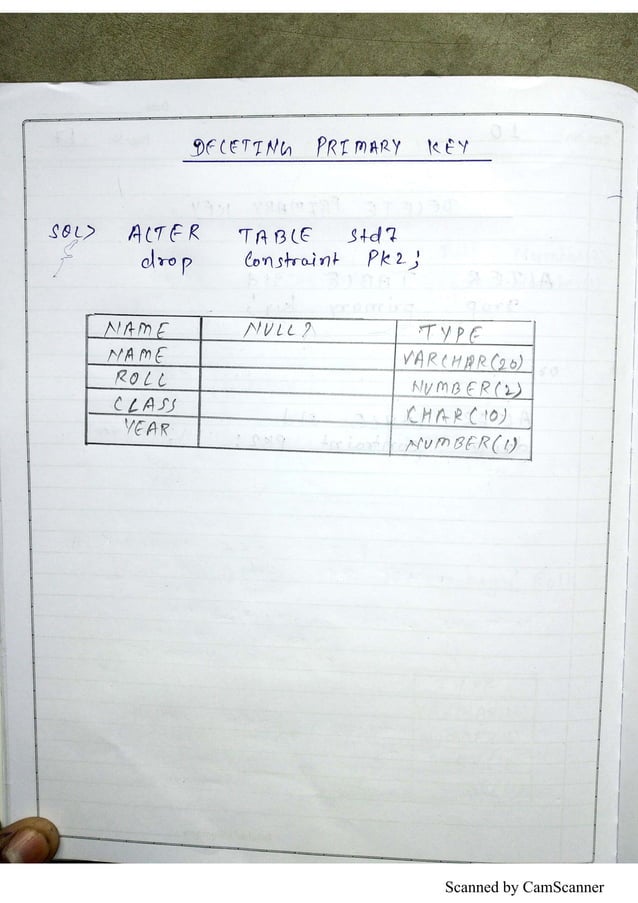 DELETING PRIMARY KEY
SQL> ALTER TABLE std7
drop constraint PK2;
NAME NULL? TYPE
NAME VARCHAR(20)
ROLL NUMBER(2)
CLASS CHAR(10)
YEAR NUMBER(1)
Scanned by CamScanner